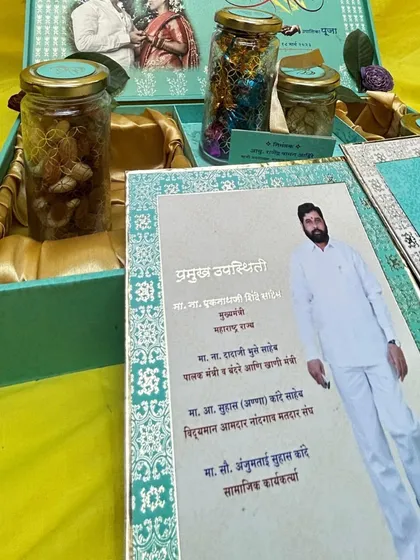 पूजा
१४ मार्च २०२३
निमंत्रक
प्रमुख उपस्थिती
मा. ना. एकनाथजी शिंदे साहेब
मुख्यमंत्री
महाराष्ट्र राज्य
मा. ना. दादाजी भुसे साहेब
पालक मंत्री व बंदरे आणि खाणी मंत्री
मा. आ. सुहास (अण्णा) कांदे साहेब
विद्यमान आमदार नांदगाव मतदार संघ
मा. सौ. अंजुमताई सुहास कांदे
सामाजिक कार्यकर्त्या